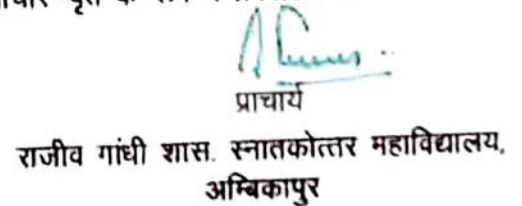 के रूप
प्राचार्य
राजीव गांधी शास. स्नातकोत्तर महाविद्यालय,
अम्बिकापुर